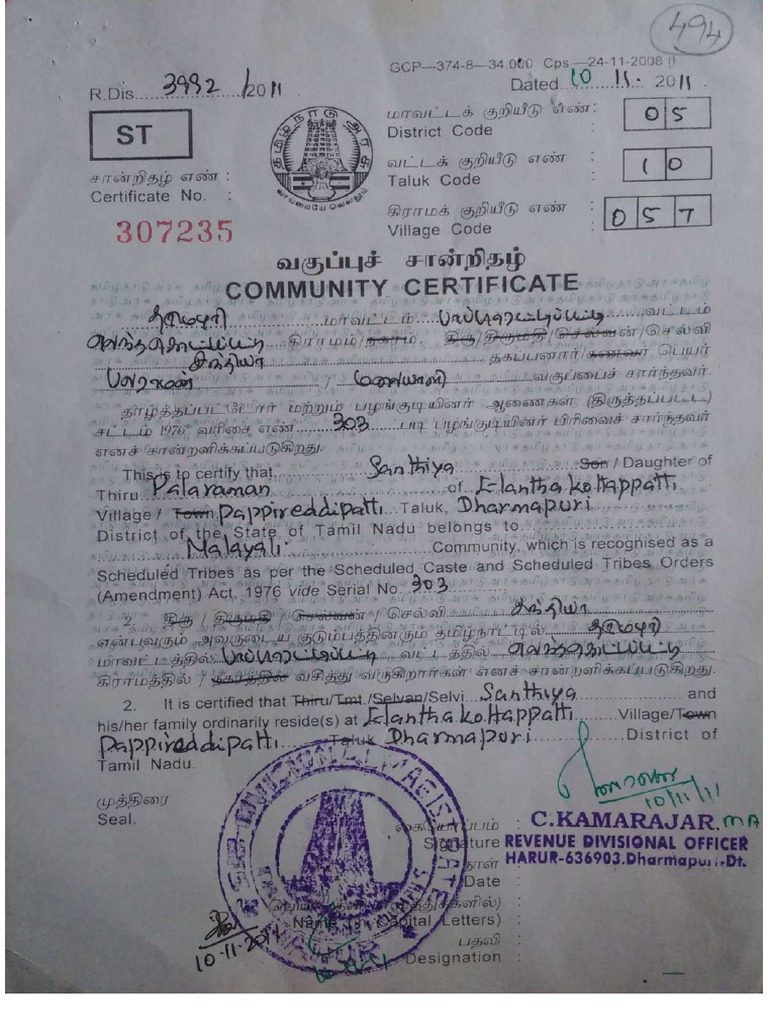 494
GCP—374-8—34,000 Cps —24-11-2008
R.Dis....3992../2011.
Dated..10..11..2011
ST
தமிழ்நாடு அரசு
வாய்மையே வெல்லும்
மாவட்டக் குறியீடு எண் :
District Code : 05
சான்றிதழ் எண் :
வட்டக் குறியீடு எண் :
Certificate No. :
Taluk Code : 10
307235
கிராமக் குறியீடு எண் :
Village Code : 057
வகுப்புச் சான்றிதழ்
COMMUNITY CERTIFICATE
தருமபுரி மாவட்டம் பாப்பிரெட்டிப்பட்டி வட்டம்
கிராமம்/நகரம், திரு/திருமதி/செல்வன்/செல்வி
சந்தியா தகப்பனார்/கணவர் பெயர்
பலராமன் / மலையாளி வகுப்பைச் சார்ந்தவர்.
தாழ்த்தப்பட்டோர் மற்றும் பழங்குடியினர் ஆணைகள் (திருத்தப்பட்ட)
சட்டம் 1976 வரிசை எண் 303 படி பழங்குடியினர் பிரிவைச் சார்ந்தவர்
எனச் சான்றளிக்கப்படுகிறது.
This is to certify that Santhiya Son / Daughter of
Thiru Palaraman of Elanthakottappatti
Village / Town Pappireddipatti Taluk, Dharmapuri
District of the State of Tamil Nadu belongs to
Malayali Community, which is recognised as a
Scheduled Tribes as per the Scheduled Caste and Scheduled Tribes Orders
(Amendment) Act, 1976 vide Serial No. 303
2. திரு / திருமதி / செல்வன் / செல்வி சந்தியா
என்பவரும் அவருடைய குடும்பத்தினரும் தமிழ்நாட்டில் தருமபுரி
மாவட்டத்தில் பாப்பிரெட்டிப்பட்டி வட்டத்தில்
கிராமத்தில் / நகரத்தில் வசித்து வருகிறார்கள் எனச் சான்றளிக்கப்படுகிறது.
2. It is certified that Thiru/Tmt./Selvan/Selvi Santhiya and
his/her family ordinarily reside(s) at Elanthakottappatti Village/Town
Pappireddipatti Taluk Dharmapuri District of
Tamil Nadu.
முத்திரை
Seal.
10/11/11
C.KAMARAJAR. MA
REVENUE DIVISIONAL OFFICER
HARUR-636903.Dharmapuri-Dt.
SUB DIVISIONAL MAGISTRATE
HARUR
கையொப்பம் :
Signature
நாள் :
Date :
Name (in Capital Letters) :
பதவி :
Designation :
10-11-2011